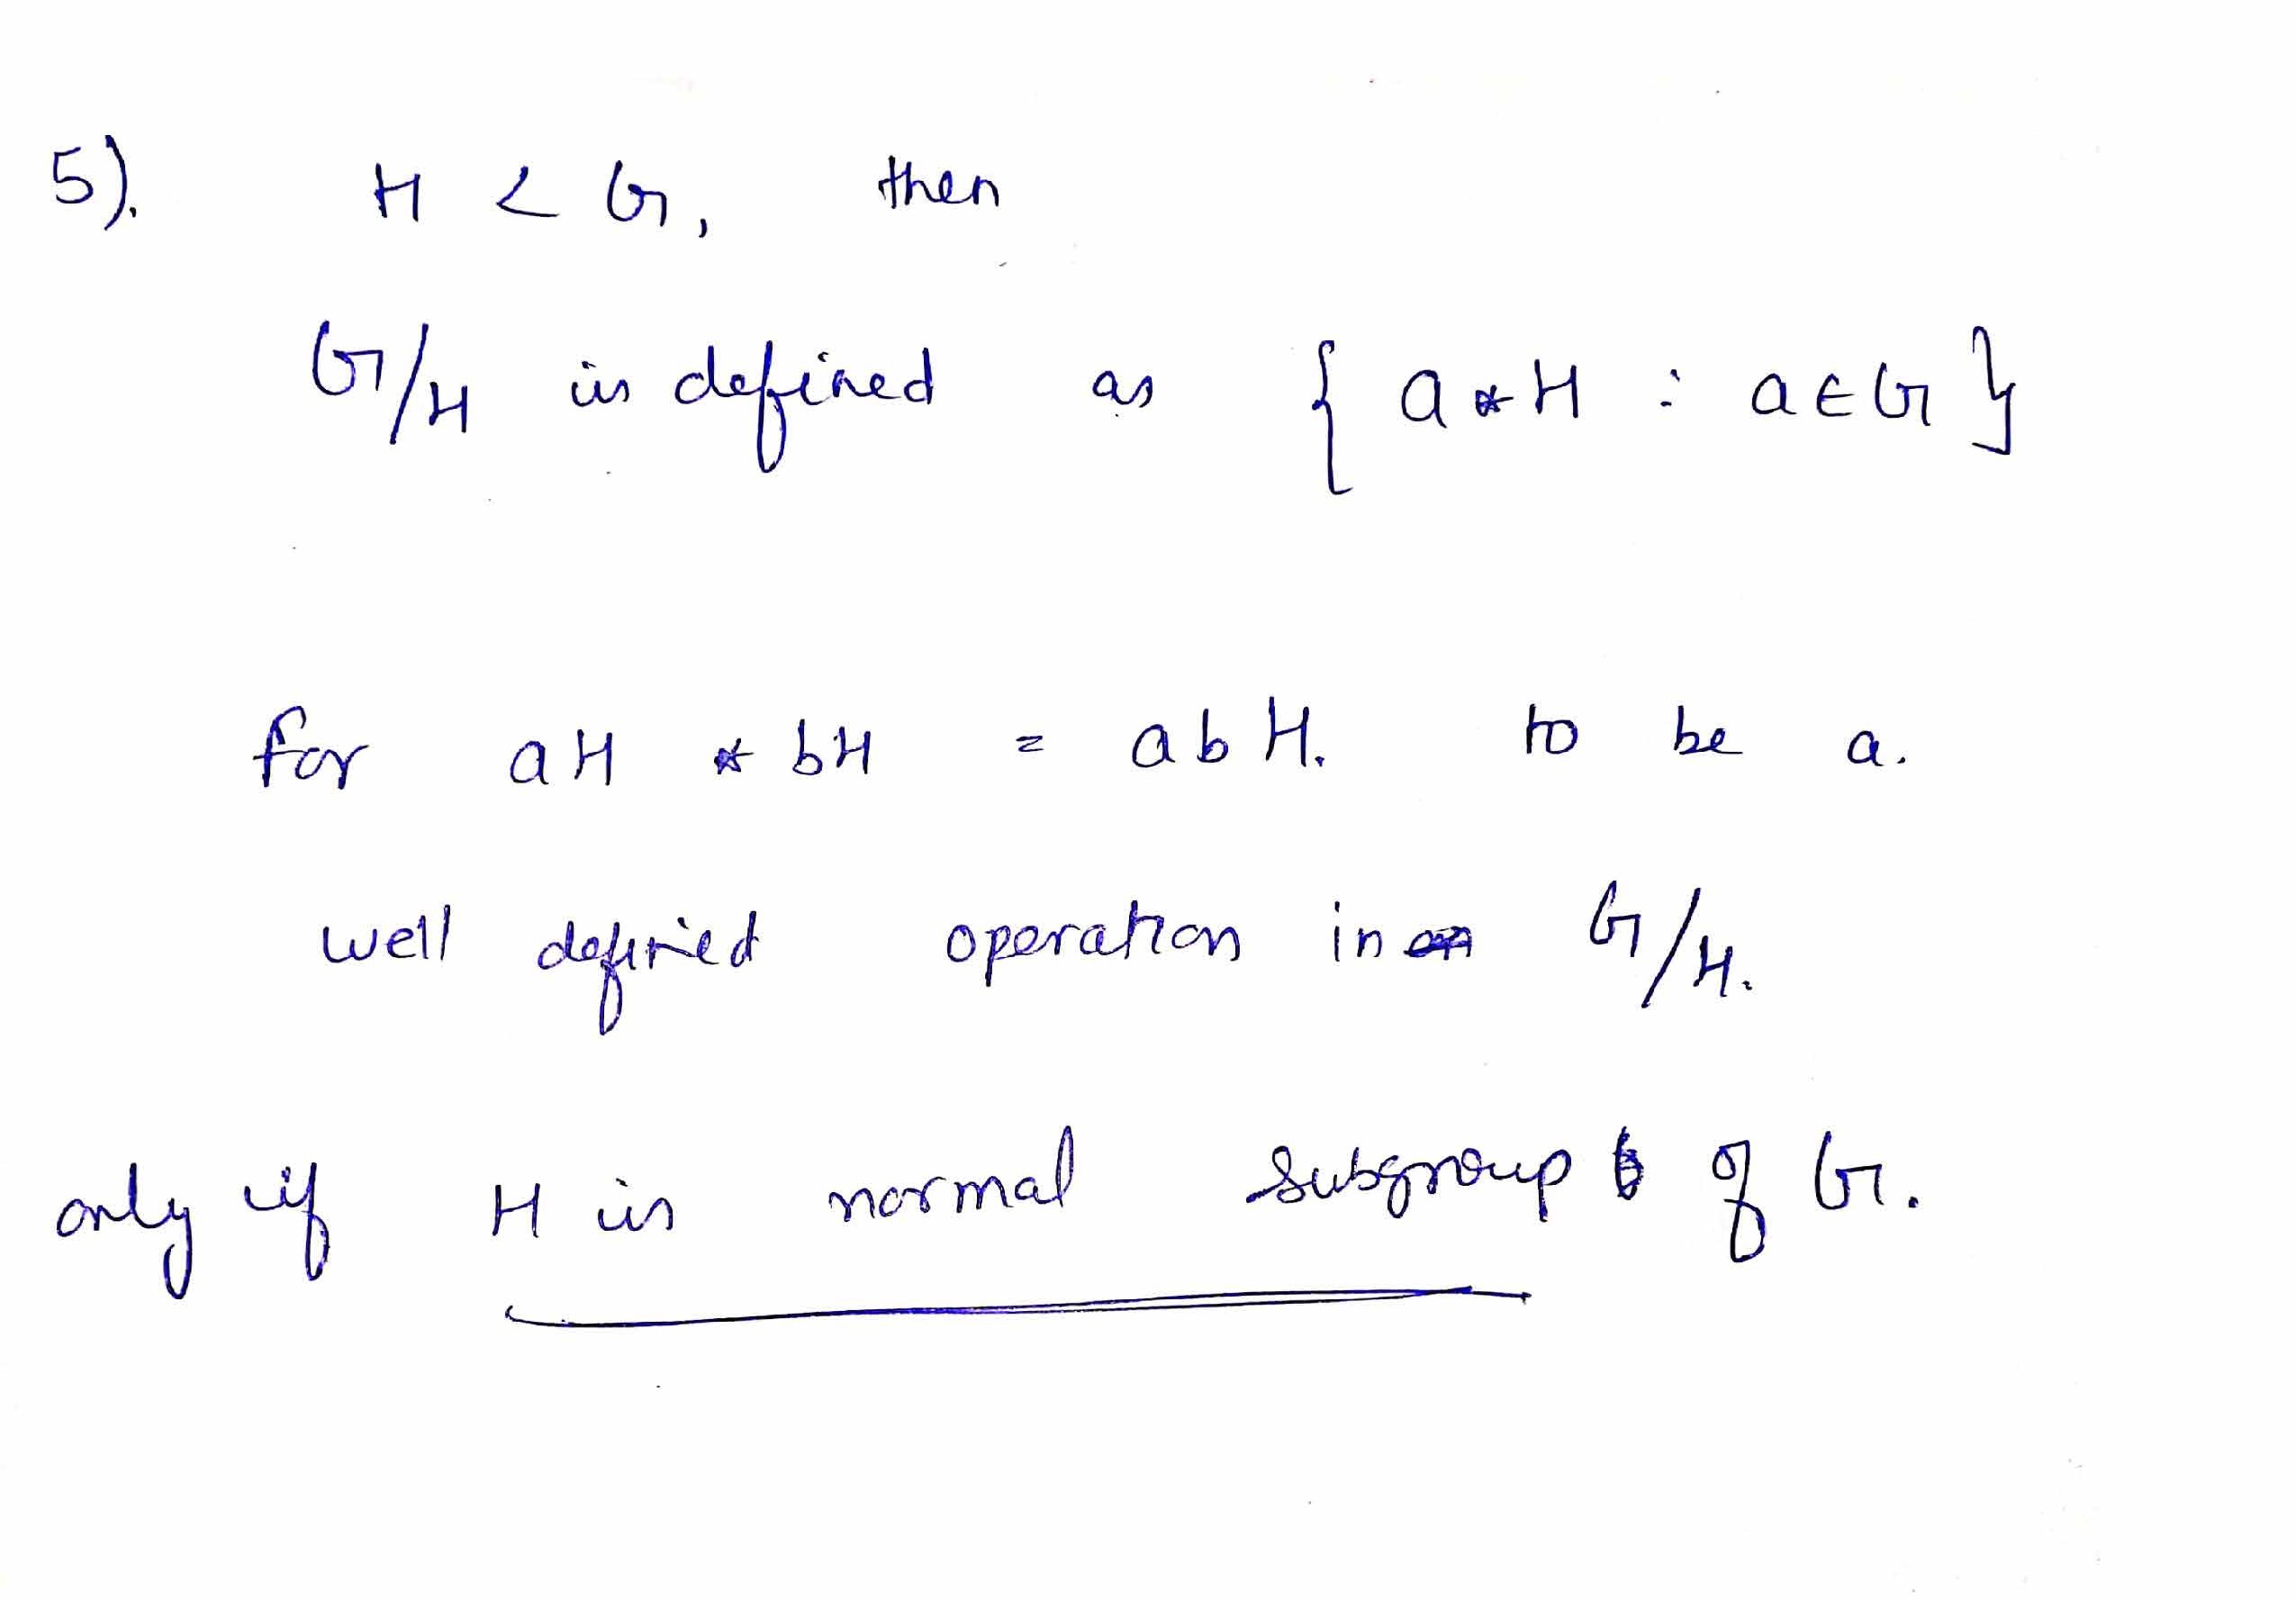 5). H < G, then
G/H is defined as { a * H : a ∈ G }
for aH * bH = abH. to be a.
well defined operation in G/H.
only if H is normal subgroup of G.